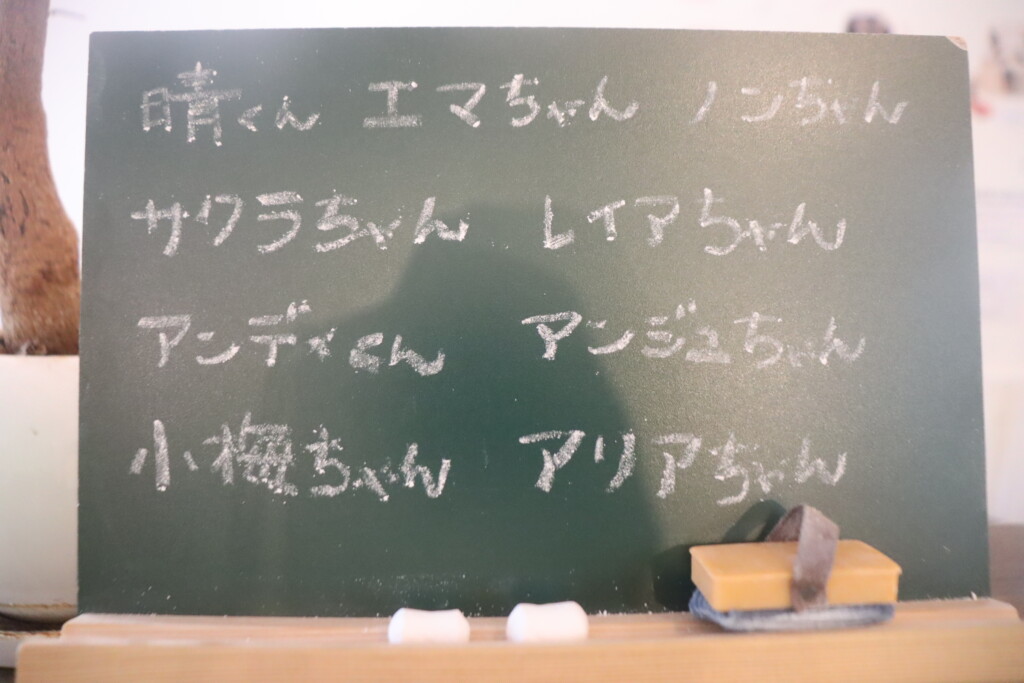 晴くん エマちゃん ノンちゃん
サクラちゃん レイアちゃん
アンディくん アンジュちゃん
小梅ちゃん アリアちゃん